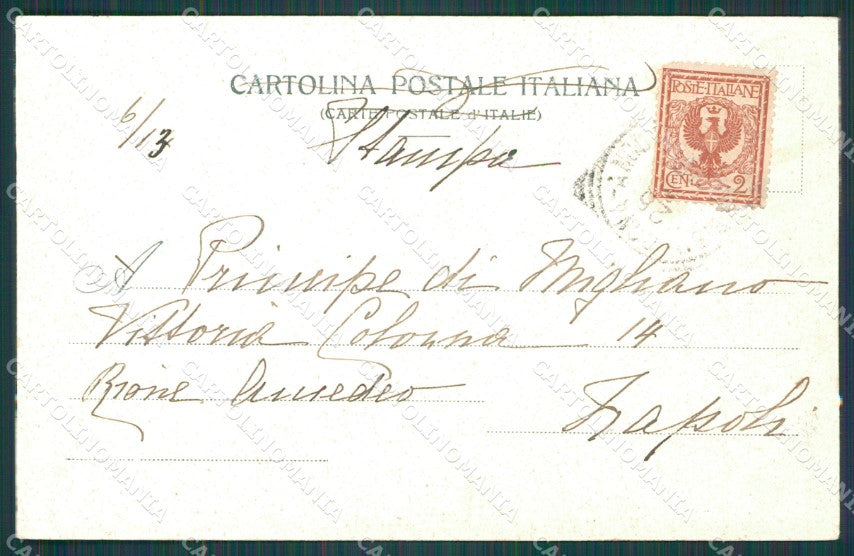 CARTOLINA POSTALE ITALIANA
(CARTE POSTALE d'ITALIE)
6/13
Stampa
POSTE·ITALIANE
CEN. 2
Principe di Migliano
Vittoria Colonna 14
Rione Amedeo
Napoli
CARTOLINOMANIA